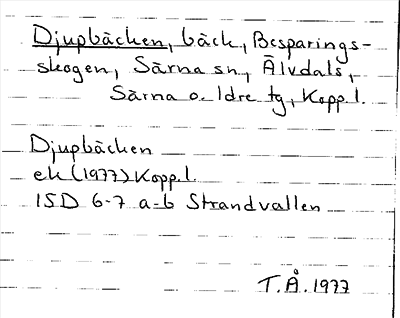 Djupbäcken, bäck, Besparings-
skogen, Särna sn, Älvdals,
Särna o. Idre tg, Kopp.l.
Djupbäcken
ek (1977) Kopp.l.
15D 6-7 a-b Strandvallen
T.Å. 1977